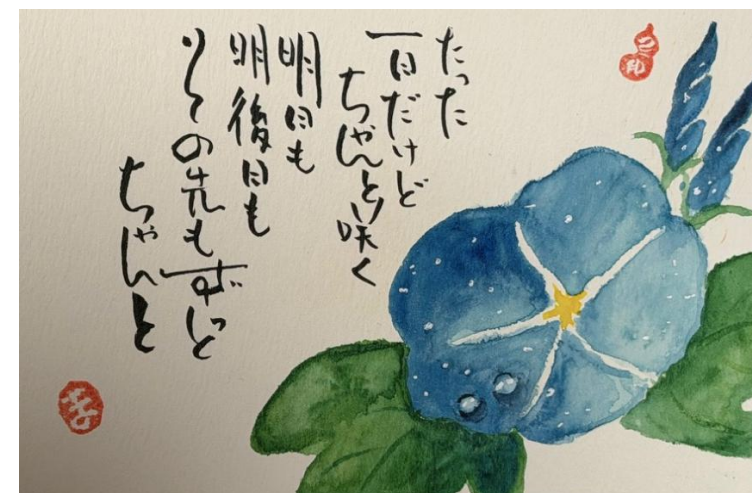 たった
一日だけど
ちゃんと咲く
明日も
明後日も
その先もずっと
ちゃんと